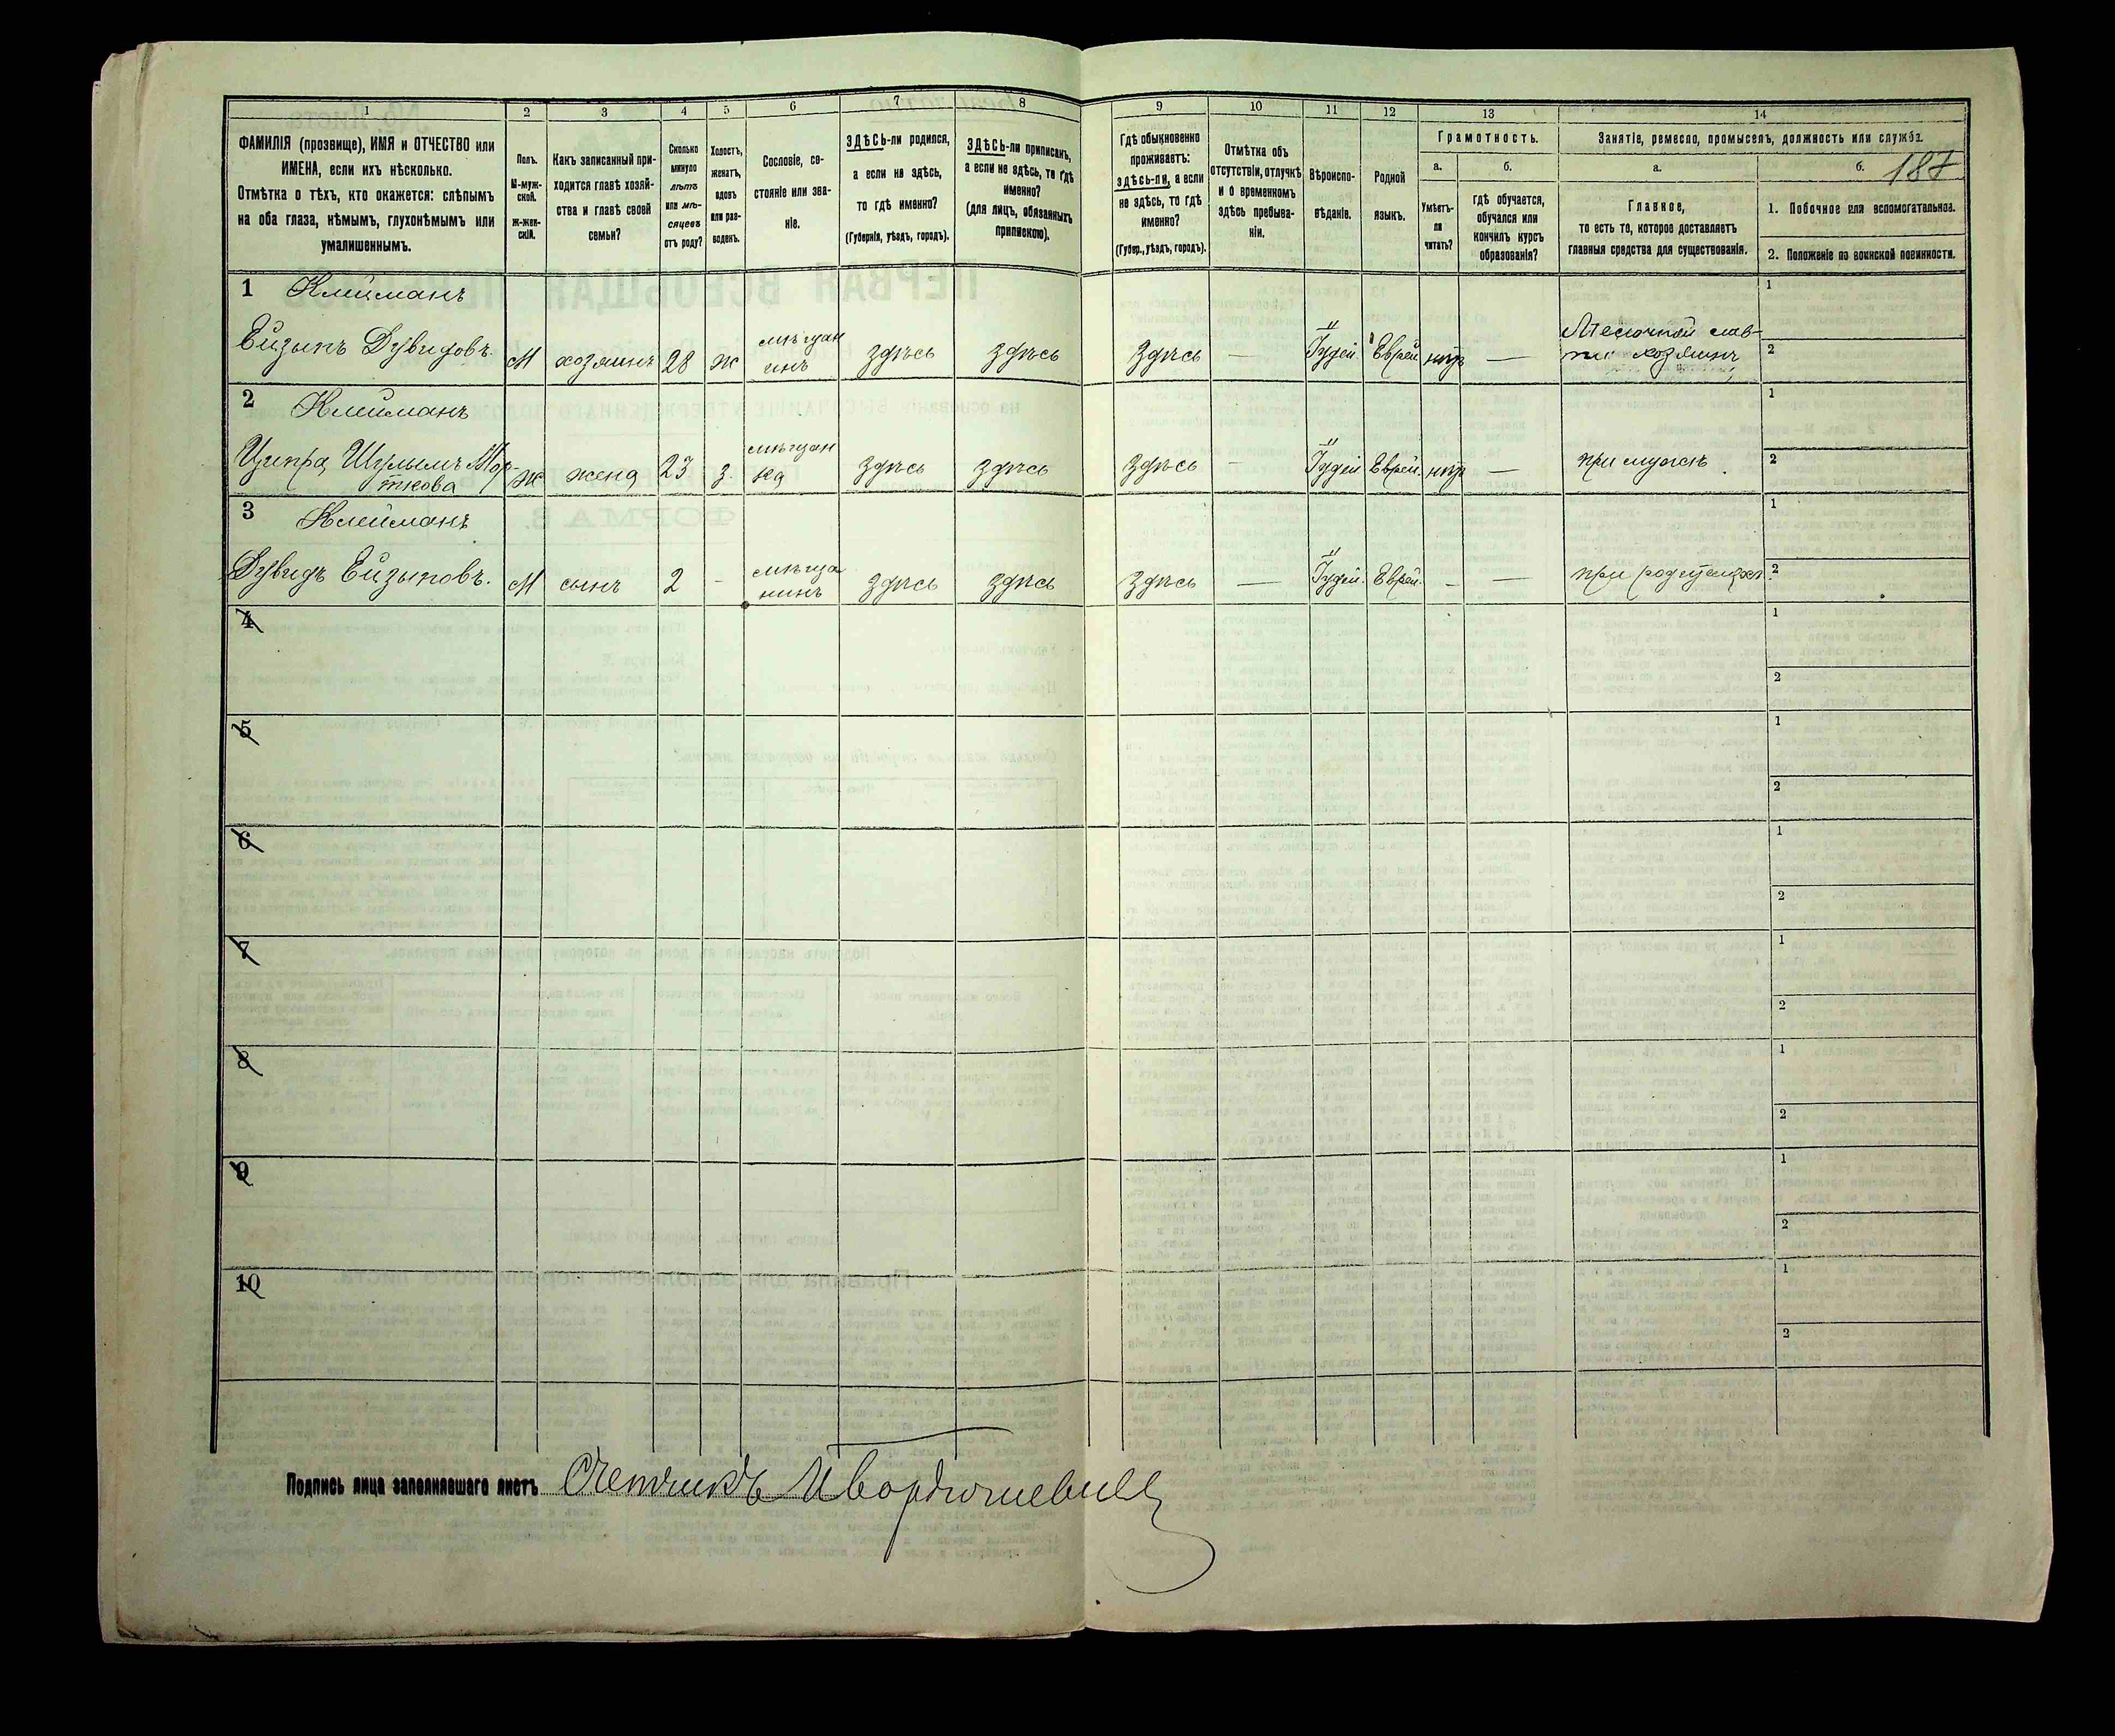 1 2 3 4 5 6 7 8 9 10 11 12 13 14
ФАМИЛІЯ (прозвище), ИМЯ и ОТЧЕСТВО или
ИМЕНА, если ихъ нѣсколько.
Отмѣтка о тѣхъ, кто окажется: слѣпымъ
на оба глаза, нѣмымъ, глухонѣмымъ или
умалишеннымъ.
Полъ.
М-муж-
ской.
Ж-жен-
скій.
Какъ записанный при-
ходится главѣ хозяй-
ства и главѣ своей
семьи?
Сколько
минуло
лѣтъ
или мѣ-
сяцевъ
отъ роду?
Холостъ,
женатъ,
вдовъ
или раз-
веденъ.
Сословіе, со-
стояніе или зва-
ніе.
ЗДѢСЬ-ли родился,
а если не здѣсь,
то гдѣ именно?
(Губернія, уѣздъ, городъ).
ЗДѢСЬ-ли приписанъ,
а если не здѣсь, то гдѣ
именно?
(для лицъ, обязанныхъ
припискою).
Гдѣ обыкновенно
проживаетъ:
здѣсь-ли, а если
не здѣсь, то гдѣ
именно?
(Губер., уѣздъ, городъ).
Отмѣтка объ
отсутствіи, отлучкѣ
и о временномъ
здѣсь пребыва-
ніи.
Вѣроиспо-
вѣданіе.
Родной
языкъ.
Грамотность.
а.
Умѣетъ-
ли
читать?
б.
гдѣ обучается,
обучался или
кончилъ курсъ
образованія?
Занятіе, ремесло, промыселъ, должность или служба.
а.
Главное,
то есть то, которое доставляетъ
главныя средства для существованія.
б.
187
1. Побочное или вспомогательное.
2. Положеніе по воинской повинности.
1 Клейманъ
Ейзыкъ Дувидовъ. М хозяинъ 28 ж мѣщан
инъ здѣсь здѣсь здѣсь — Іудей. Еврей нѣтъ — хозяинъ
1
2
2 Клейманъ
Ципра Шулымъ Мор-
ткова ж жена 23 з. мѣщан
ка здѣсь здѣсь здѣсь — Іудей Еврей. нѣтъ — при мужѣ.
1
2
3 Клейманъ
Дувидъ Ейзыковъ. М сынъ 2 - мѣща
нинъ здѣсь здѣсь здѣсь — Іудей. Еврей. - — при родителяхъ.
1
2
4
1
2
5
1
2
6
1
2
7
1
2
8
1
2
9
1
2
10
1
2
Подпись лица заполнявшаго листъ Счетчикъ